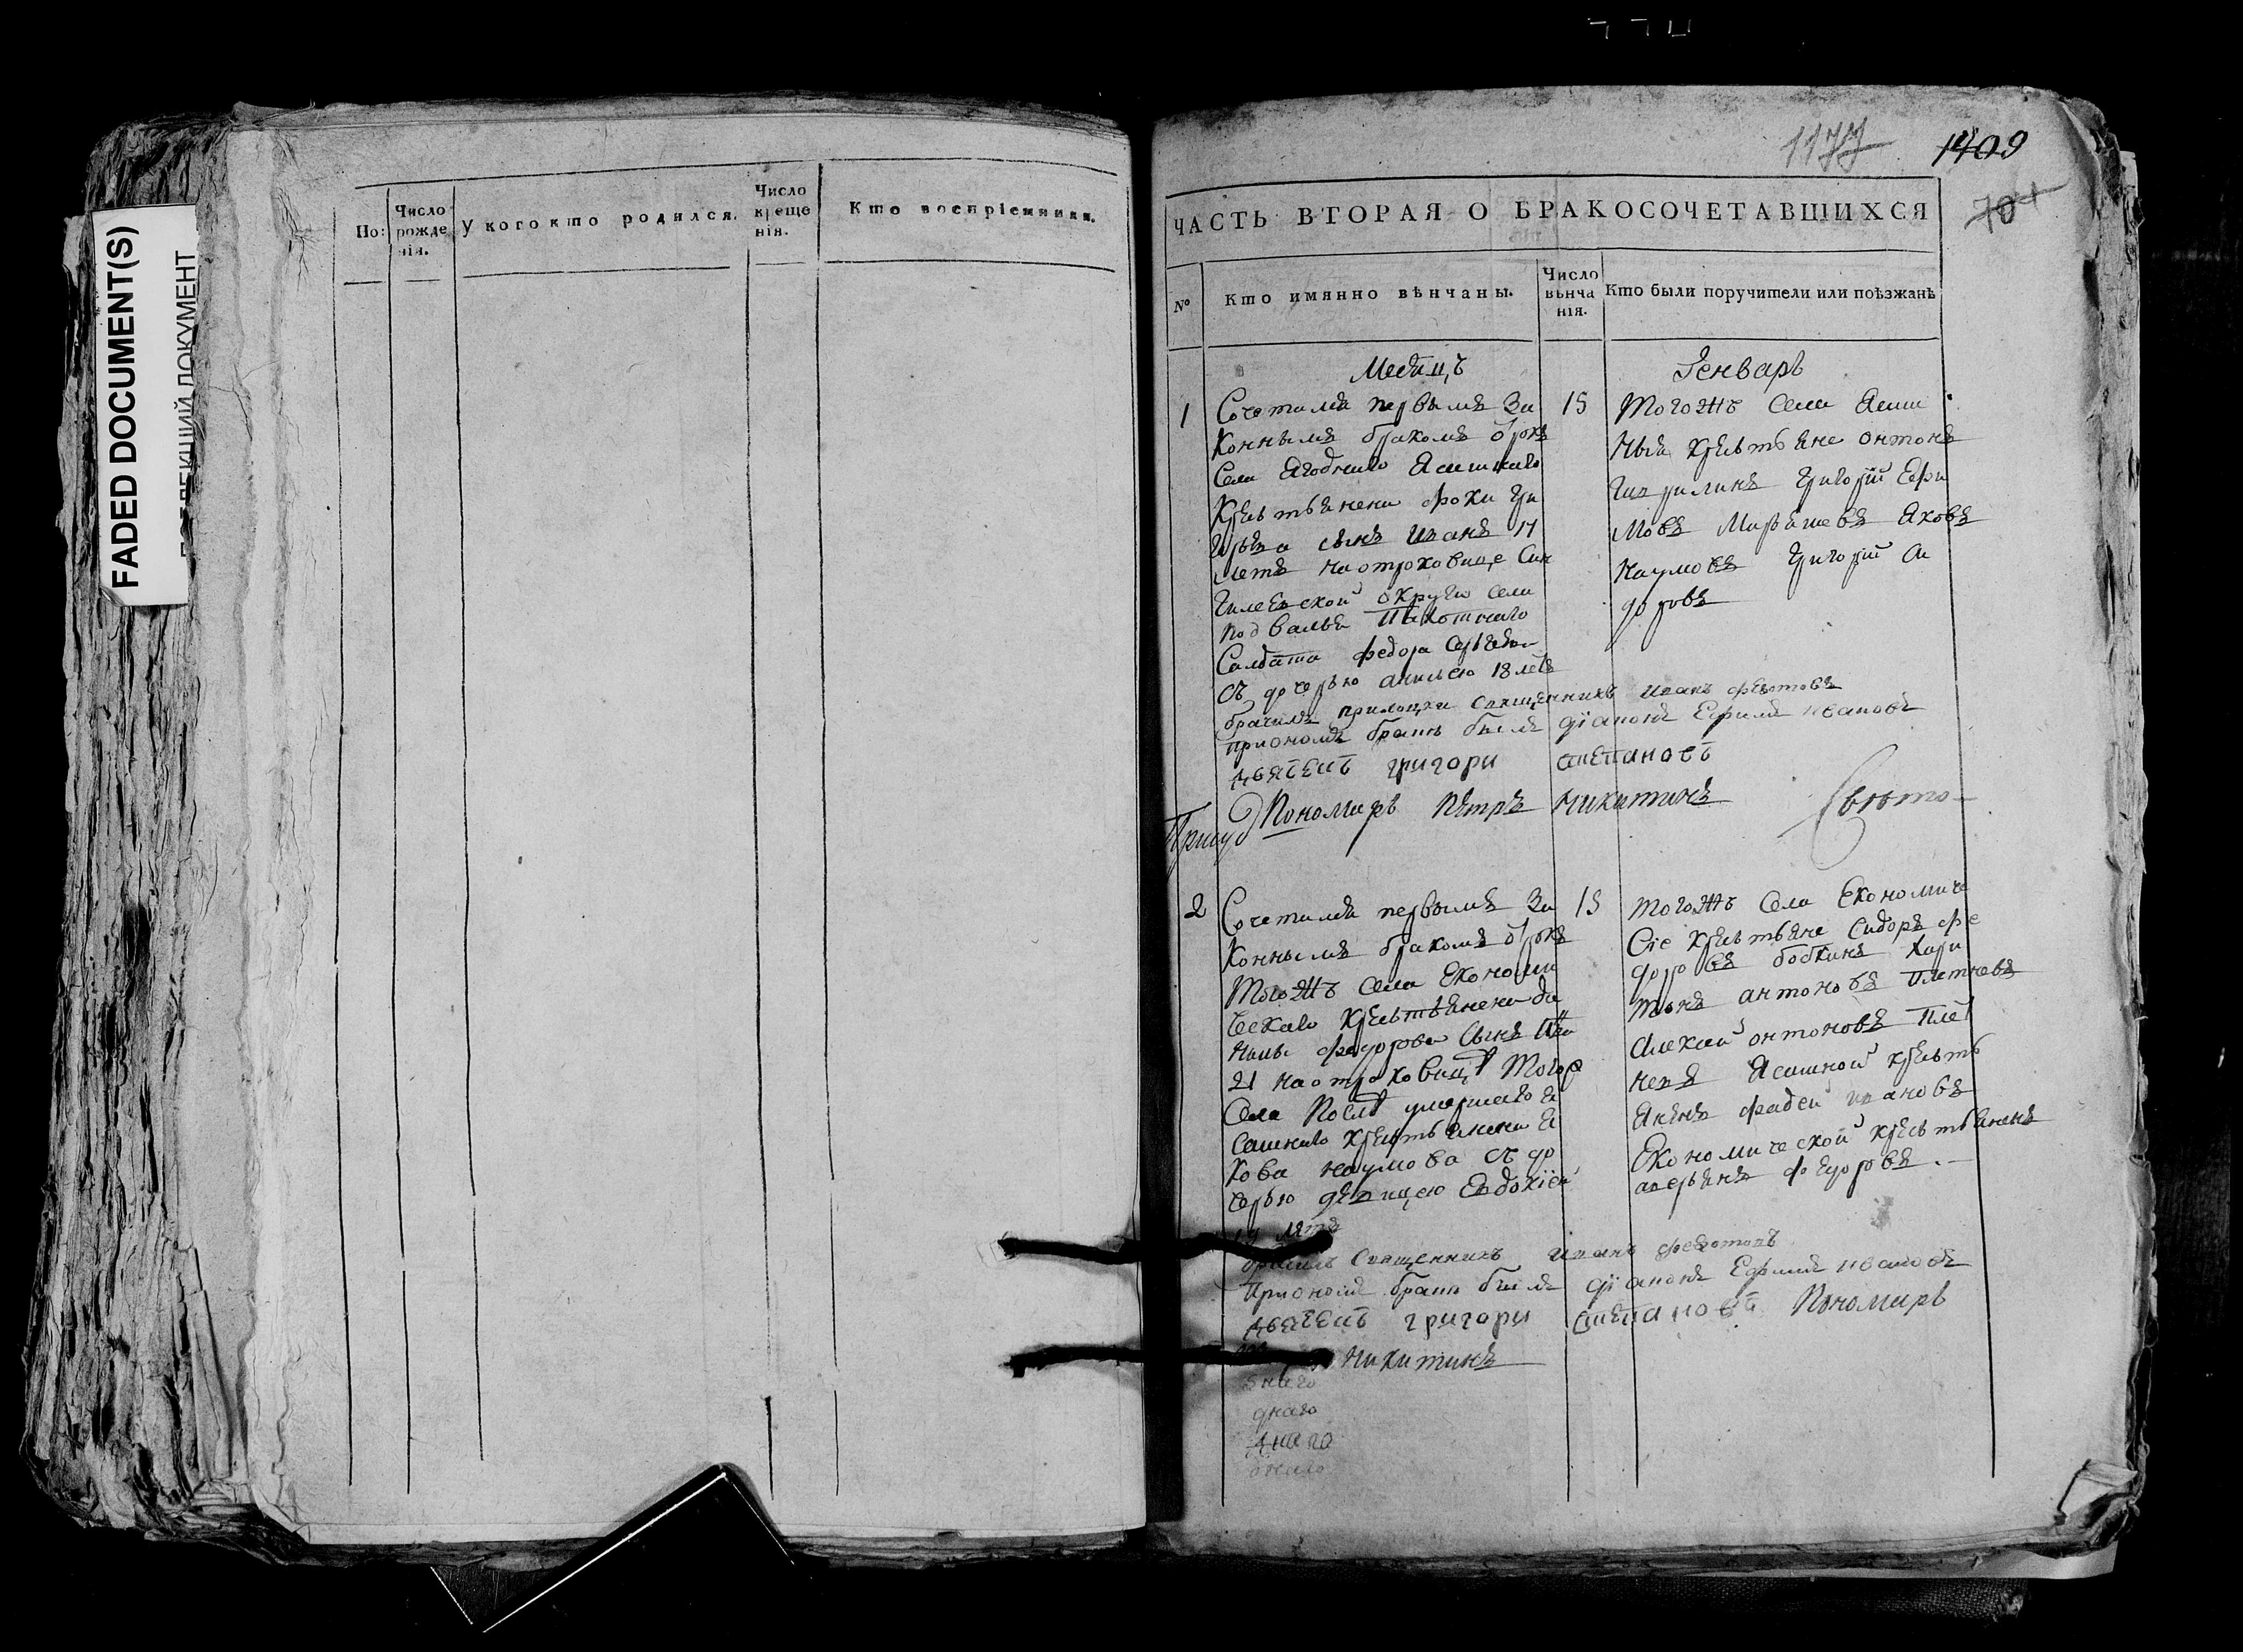 FADED DOCUMENT(S)
ДОКУМЕНТ
Но:
Число рожденія.
У кого кто родился.
Число крещенія.
Кто воспріемники.
1177
1409
70
ЧАСТЬ ВТОРАЯ О БРАКОСОЧЕТАВШИХСЯ
№
Кто имянно вѣнчаны.
Число вѣнчанія.
Кто были поручители или поѣзжанѣ
Месяцъ Генварь
1
Сочетался первымъ За
коннымъ бракомъ отрокъ
Села Ягоднаго Ясашнаго
Крестьянена Фоки Гри
горьева сынъ Иванъ 17
летъ на отроковице Син
гилеевской округи села
подвалья Пахотнаго
Салдата Федора Сергѣева
съ дочерью 18 летъ
15
Тогожъ села Ясаш
ныя крестьяне онтонъ
Григорій Ефи
мовъ Яковъ
Наумовъ Григорій Си
доровъ
Священникъ Иванъ Федотовъ
при ономъ браке былъ діаконъ Ефимъ ивановъ
григори степановъ
Пономарь Петръ Никитинъ
2
Сочетался первымъ За
коннымъ бракомъ отрокъ
Тогожъ села Економи
ческаго крестьянена Да
нилы Федорова Сынъ
21 на отроковицѣ Тогож
Села Послѣ умершаго Я
сашнаго крестьянина Я
кова наумова съ до
черью девицею Евдокіей
летъ
15
Тогожъ Села Економиче
Сіе крестьяне Сидоръ Фе
доровъ бобкинъ Хари
тонъ антоновъ Плетневъ
Алексей онтоновъ Плет
невъ Ясашной крестья
Фадей ивановъ
Економической крестьянинъ
аверьянъ федоровъ.
Священникъ Иванъ Федотовъ
При ономъ браке былъ діаконъ Ефимъ ивановъ
григори степановъ Пономарь
Никитинъ